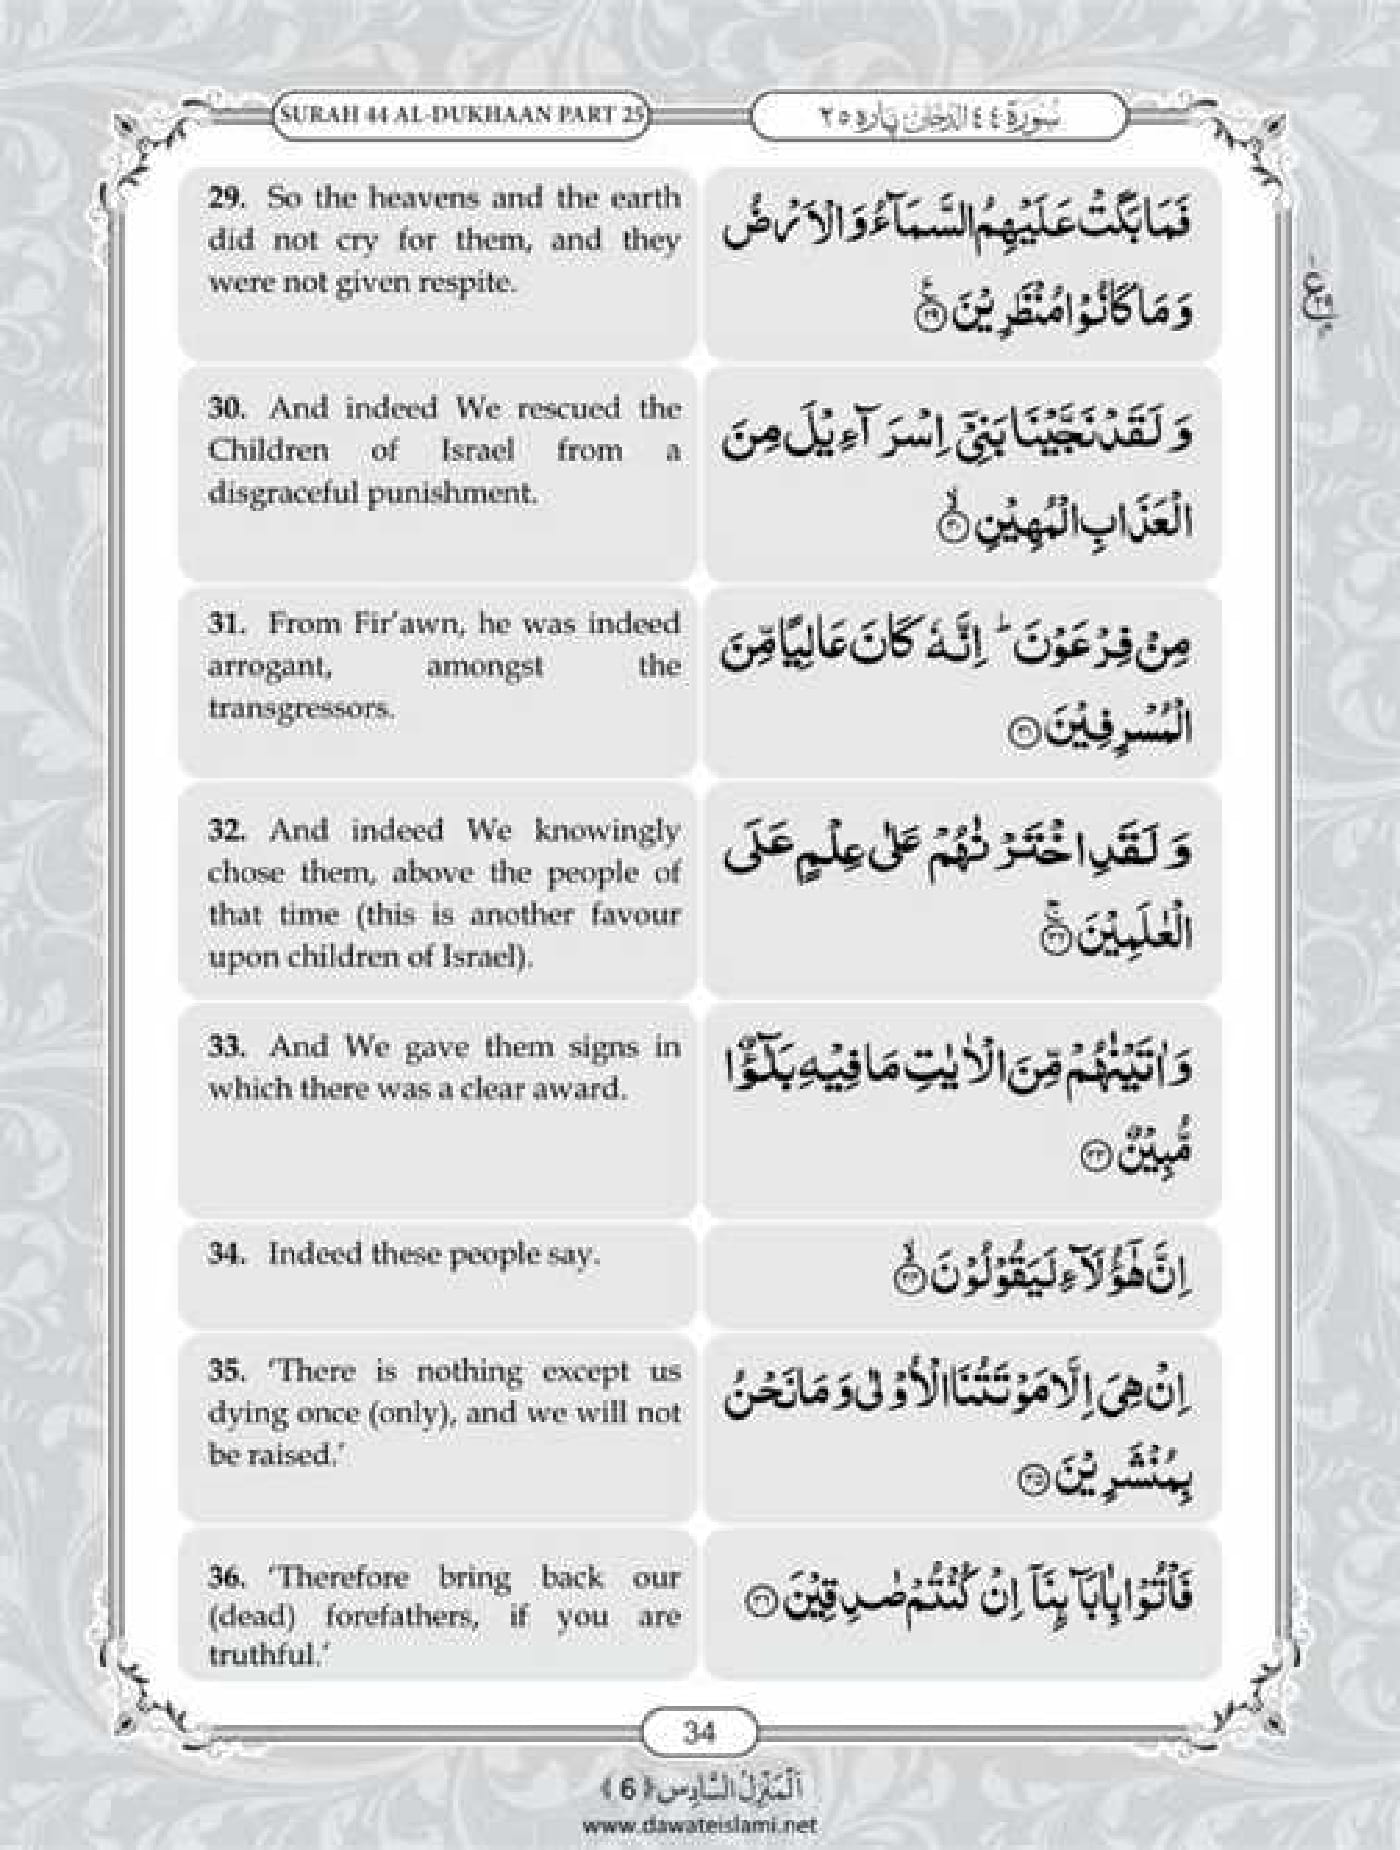 SURAH 44 AL-DUKHAAN PART 25
سُوْرَة ٤٤ الدُّخَان پارہ ٢٥
29. So the heavens and the earth
did not cry for them, and they
were not given respite.
فَمَا بَكَتْ عَلَيْهِمُ السَّمَآءُ وَ الْاَرْضُ
وَ مَا كَانُوْا مُنْظَرِيْنَ ﴿۲۹﴾
30. And indeed We rescued the
Children of Israel from a
disgraceful punishment.
وَ لَقَدْ نَجَّيْنَا بَنِيْۤ اِسْرَآءِيْلَ مِنَ
الْعَذَابِ الْمُهِيْنِ ﴿۳۰﴾
31. From Fir’awn, he was indeed
arrogant, amongst the
transgressors.
مِنْ فِرْعَوْنَ ؕ اِنَّهٗ كَانَ عَالِيًا مِّنَ
الْمُسْرِفِيْنَ ﴿۳۱﴾
32. And indeed We knowingly
chose them, above the people of
that time (this is another favour
upon children of Israel).
وَ لَقَدِ اخْتَرْنٰهُمْ عَلٰى عِلْمٍ عَلَى
الْعٰلَمِيْنَ ﴿۳۲﴾
33. And We gave them signs in
which there was a clear award.
وَ اٰتَيْنٰهُمْ مِّنَ الْاٰيٰتِ مَا فِيْهِ بَلٰٓؤٌا
مُّبِيْنٌ ﴿۳۳﴾
34. Indeed these people say.
اِنَّ هٰۤؤُلَآءِ لَيَقُوْلُوْنَ ﴿۳۴﴾
35. ‘There is nothing except us
dying once (only), and we will not
be raised.’
اِنْ هِيَ اِلَّا مَوْتَتُنَا الْاُوْلٰى وَ مَا نَحْنُ
بِمُنْشَرِيْنَ ﴿۳۵﴾
36. ‘Therefore bring back our
(dead) forefathers, if you are
truthful.’
فَاْتُوْا بِاٰبَآئِنَاۤ اِنْ كُنْتُمْ صٰدِقِيْنَ ﴿۳۶﴾
34
اَلْمَنْزِلُ السَّادِس ﴿6﴾
www.dawateislami.net